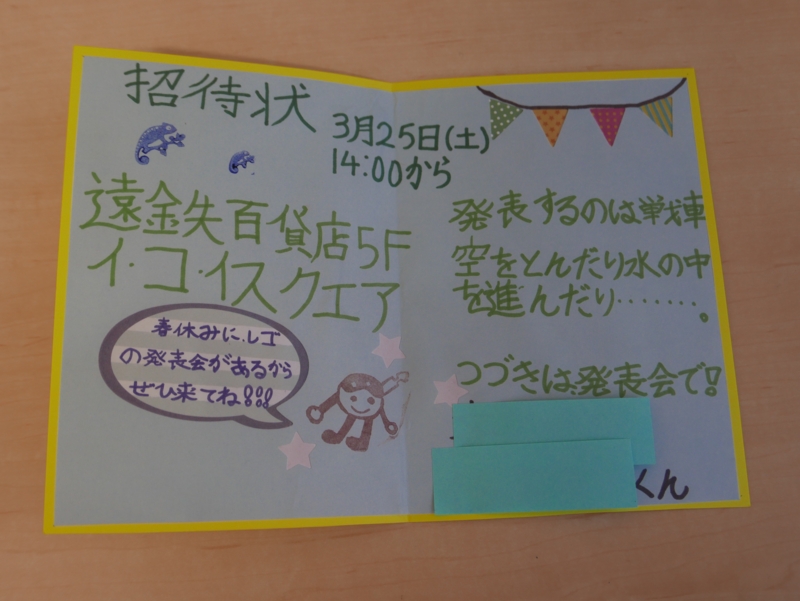 招待状
3月25日(土)
14:00から
遠鉄百貨店5F
イ・コ・イスクエア
春休みに、レゴ
の発表会があるから
ぜひ来てね!!!
発表するのは戦車
空をとんだり水の中
を進んだり・・・・・・・。
つづきは、発表会で!
くん